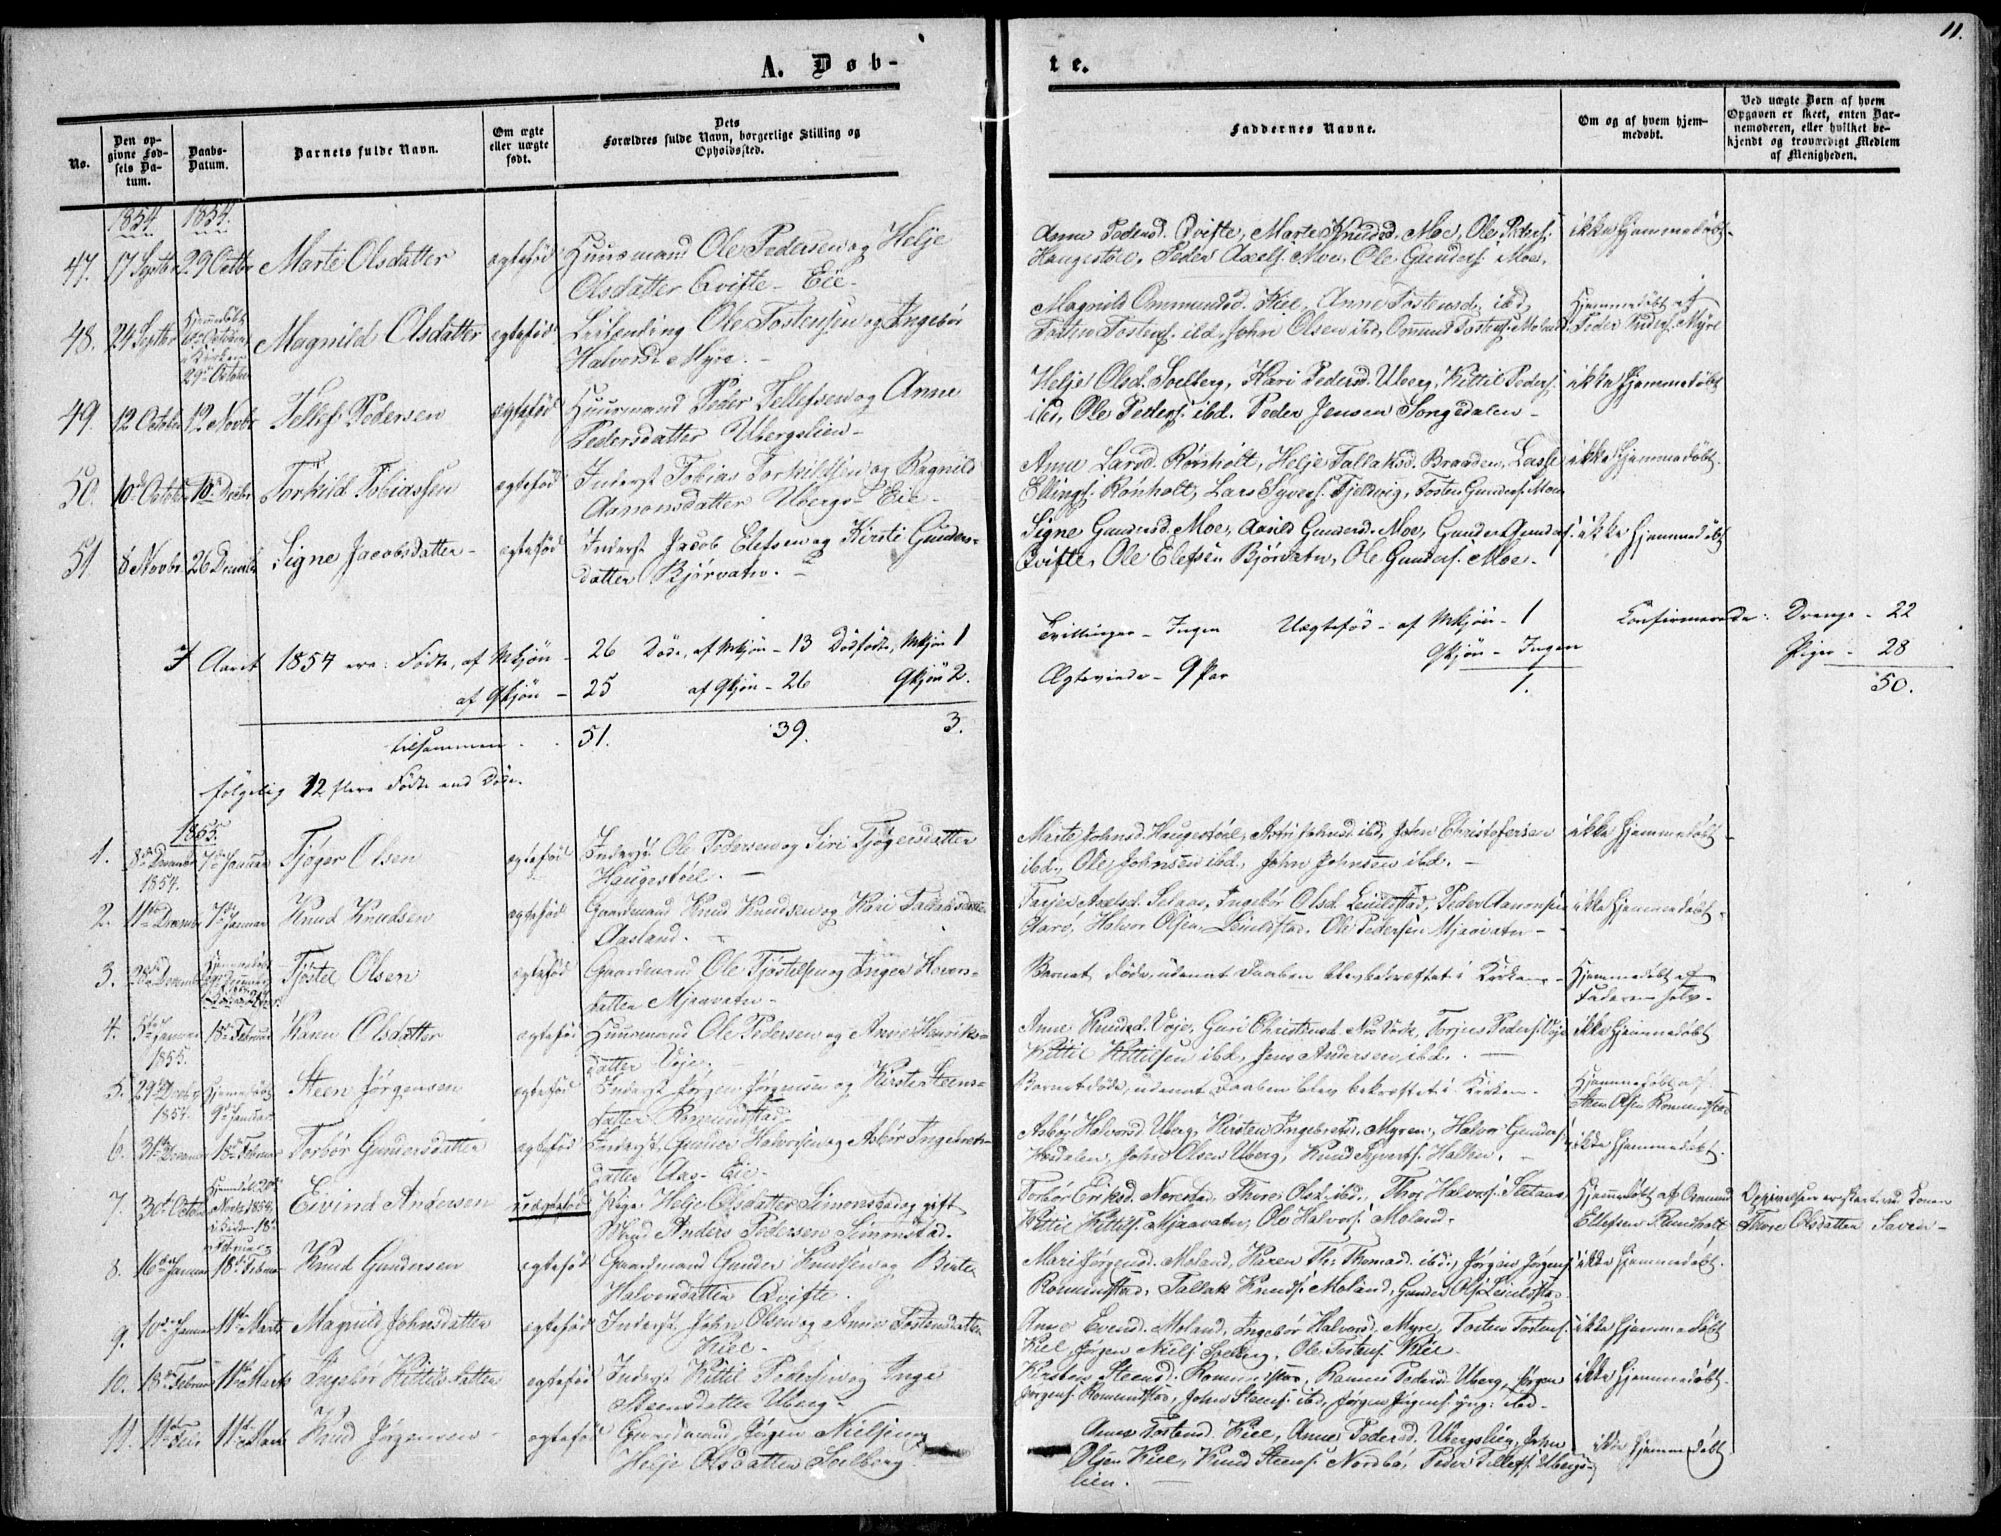 11.
A. Døb-
te.
No.
Den op-
givne Fød-
sels Da-
tum.
Daabs-
Datum.
Barnets fulde Navn.
Om ægte
eller uægte
født.
Dets
Forældres fulde Navn, borgerlige Stilling og
Opholdssted.
Faddernes Navne.
Om og af hvem hjem-
medøbt.
Ved uægte Børn af hvem
Opgaven er skeet, enten Bar-
nemoderen, eller hvilket be-
kjendt og troværdigt Medlem
af Menigheden.
1854. 1854.
47. 17 Septbr 29 Octbr Marte Olsdatter ægtefød Huusmand Ole Pedersen og Helje
Olsdatter Qvifte-Eie.
Anne Pedersd. Qvifte, Marte Knudsd. Moe, Ole Peders.
Haugestöel, Peder Axels. Moe, Ole Gunders. Moe.
ikke hjemmedøbt.
48. 24 Septbr Hjemdøbt
October
i Kirken
29de October
Magnild Olsdatter ægtefød Leilending Ole Tostensen og Ingebör
Halvorsd. Myre.
Magnild Ommundsd. Kiel, Anne Tostensd. ibd,
Tosten Tostens. ibd, John Olsen ibd, Ommund Tostens. Moland.
Hjemmedøbt af
Peder Peders. Myre
49. 12 October 12 Novbr Tellef Pedersen ægtefød Huusmand Peder Tellefsen og Anne
Pedersdatter Ubergslien-
Helje Olsd. Solberg, Kari Pedersd. Uberg, Kittil Peders.
ibd, Ole Peders. ibd. Peder Jensen Songedalen-
ikke hjemmedøbt
50. 10de October 10de Decbr Torkild Tobiassen ægtefød Inderst Tobias Torkildsen og Ragnild
Aanonsdatter Ubergs Eie-
Anne Larsd. Rönholt, Helje Tallaksd. Braaden, Lasse
Ellings. Rönholt, Lars Syvers. Fjeldvig, Tosten Gunders. Moe
ikke hjemmedøbt.
51. 8 Novbr 26 Decembr Signe Jacobsdatter- ægtefød Inderst Jacob Elefsen og Kirsti Gunders-
datter Bjørvatn.
Signe Gundersd. Moe, Aasild Gundersd. Moe, Gunder Gunders.
Qvifte, Ole Elefsen Bjørvatn, Ole Gunders. Moe.
ikke hjemmedøbt
I Aaret 1854 ere: Födte, af Mkjön - 26 Döde, af Mkjön - 13 Dödfödte, Mkjön 1
af Qkjön - 25 af Qkjön - 26 Qkjön 2.
tilsammen . . 51. 39. 3.
Følgelig 12 flere Födte end Döde.
Tvillinger - Ingen Uægtefød - af Mkjön - 1
Qkjön - Ingen
Ægteviede - 9 Par 1.
Confirmerede: Drenge - 22
Piger - 28
50.
1855.
1. 8de Decembr
1854.
7de Januar Tjøger Olsen ægtefød Inderst Ole Pedersen og Siri Tjøgersdatter
Haugestöel.
Marte Johnsd. Haugestöel, Astri Johnsd. ibd, John Christofersen
ibd, Ole Johnsen ibd., John Johnsen ibd.
ikke hjemmedøbt
2. 11te Decembr 7de Januar Knud Knudsen ægtefød Gaardmand Knud Knudsen og Kari Tallaksdatter
Aasland.
Axelsd. Ingebör Olsd. Peder Aanonsen
Halvor Olsen Ole Pedersen Mjaavatn-
ikke hjemmedøbt.
3. Decembr Hjemmedøbt
Tjöstel Olsen ægtefød Gaardmand Ole Tjöstelsen og Inger Hovers-
datter Mjaavatn-
Barnet døde, udenat Daaben blev bekræftet i Kirken-
Hjemmedøbt af
Faderen selv.
4. 5te Januar
1855.
18de Februar Karen Olsdatter ægtefød Huusmand Ole Pedersen og Anne Henriks-
datter Voje.
Anne Knudsd. Voje, Guri Christensd. Torjus Peders. Voje
Kittil Kittilsen ibd, Jens Andersen ibd.
ikke hjemmedøbt
5. 29de Decbr
1854.
Hjemmedøbt
9de Januar.
Steen Jørgensen ægtefød Inderst Jørgen Jørgensen og Kirsten Steens-
datter Romundstad.
Barnet døde, udenat Daaben blev bekræftet i Kirken-
Hjemmedøbt af
Steen Olsen Romundstad
6. 31te Decembr 18de Februar Torbör Gundersdatter ægtefød Inderst Gunder Halvorsen og Asbör Ingebrets-
datter Aas-Eie-
Asbör Halvorsd. Uberg, Kirsten Ingebretsd. Myren, Halvor Gunders.
John Olsen Uberg, Knud Syverts.
ikke hjemmedøbt.
7. 30te October Hjemdøbt 20de
Novbr 1854,
i Kirken 18de
Februar
Eivind Andersen uægtefød Pige Helje Olsdatter Simonstad og gift
Mand Anders Pedersen Simonstad.
Torbör Eriksd. Thore Olsd. ibd., Halvors.
Kittil Kittils. Mjaavatn, Ole Halvors. Moland.
Hjemmedøbt af Ommund
Ellefsen
Opgivelsen er skeet ved Konen
Thore Olsdatter
8. 16de Januar 18de Februar Knud Gundersen ægtefød Gaardmand Gunder Knudsen og Birte
Halvorsdatter Qvifte.
Mari Jørgensd. Moland, Karen Thomasd. ibd., Jørgen Jørgens.
Romundstad, Tallak Knuds. Moland, Gunder Ols.
ikke hjemmedøbt.
9. 10de Januar 11te Marts Magnild Johnsdatter ægtefød Inderst John Olsen og Anne Tostensdatter
Kiel.
Anne Evensd. Moland, Ingebör Halvorsd. Myre, Tosten Tostens.
Kiel, Jørgen Niels. Solberg, Ole Tostens. Kiel.
ikke hjemmedøbt
10. 18de Februar 11te Marts Ingebör Kittilsdatter ægtefød Inderst Kittil Pedersen og Inge
Steensdatter Uberg-
Kirsten Steensd. Romundstad, Pedersd. Uberg, Jørgen
Jørgens. Romundstad, John Steens. ibd, Jørgen Jørgens. yng. ibd.
ikke hjemmedøbt.
11. 11te Febr 11te Marts Knud Jørgensen ægtefød Gaardmand Jørgen Nielsen og
Helje Olsdatter Solberg.
Anne Tostensd. Kiel, Anne Pedersd. Ubergslien, John
Olsen Kiel, Knud Steens. Nordbö, Peder Tellefs. Ubergs-
lien.
ikke hjemmedøbt